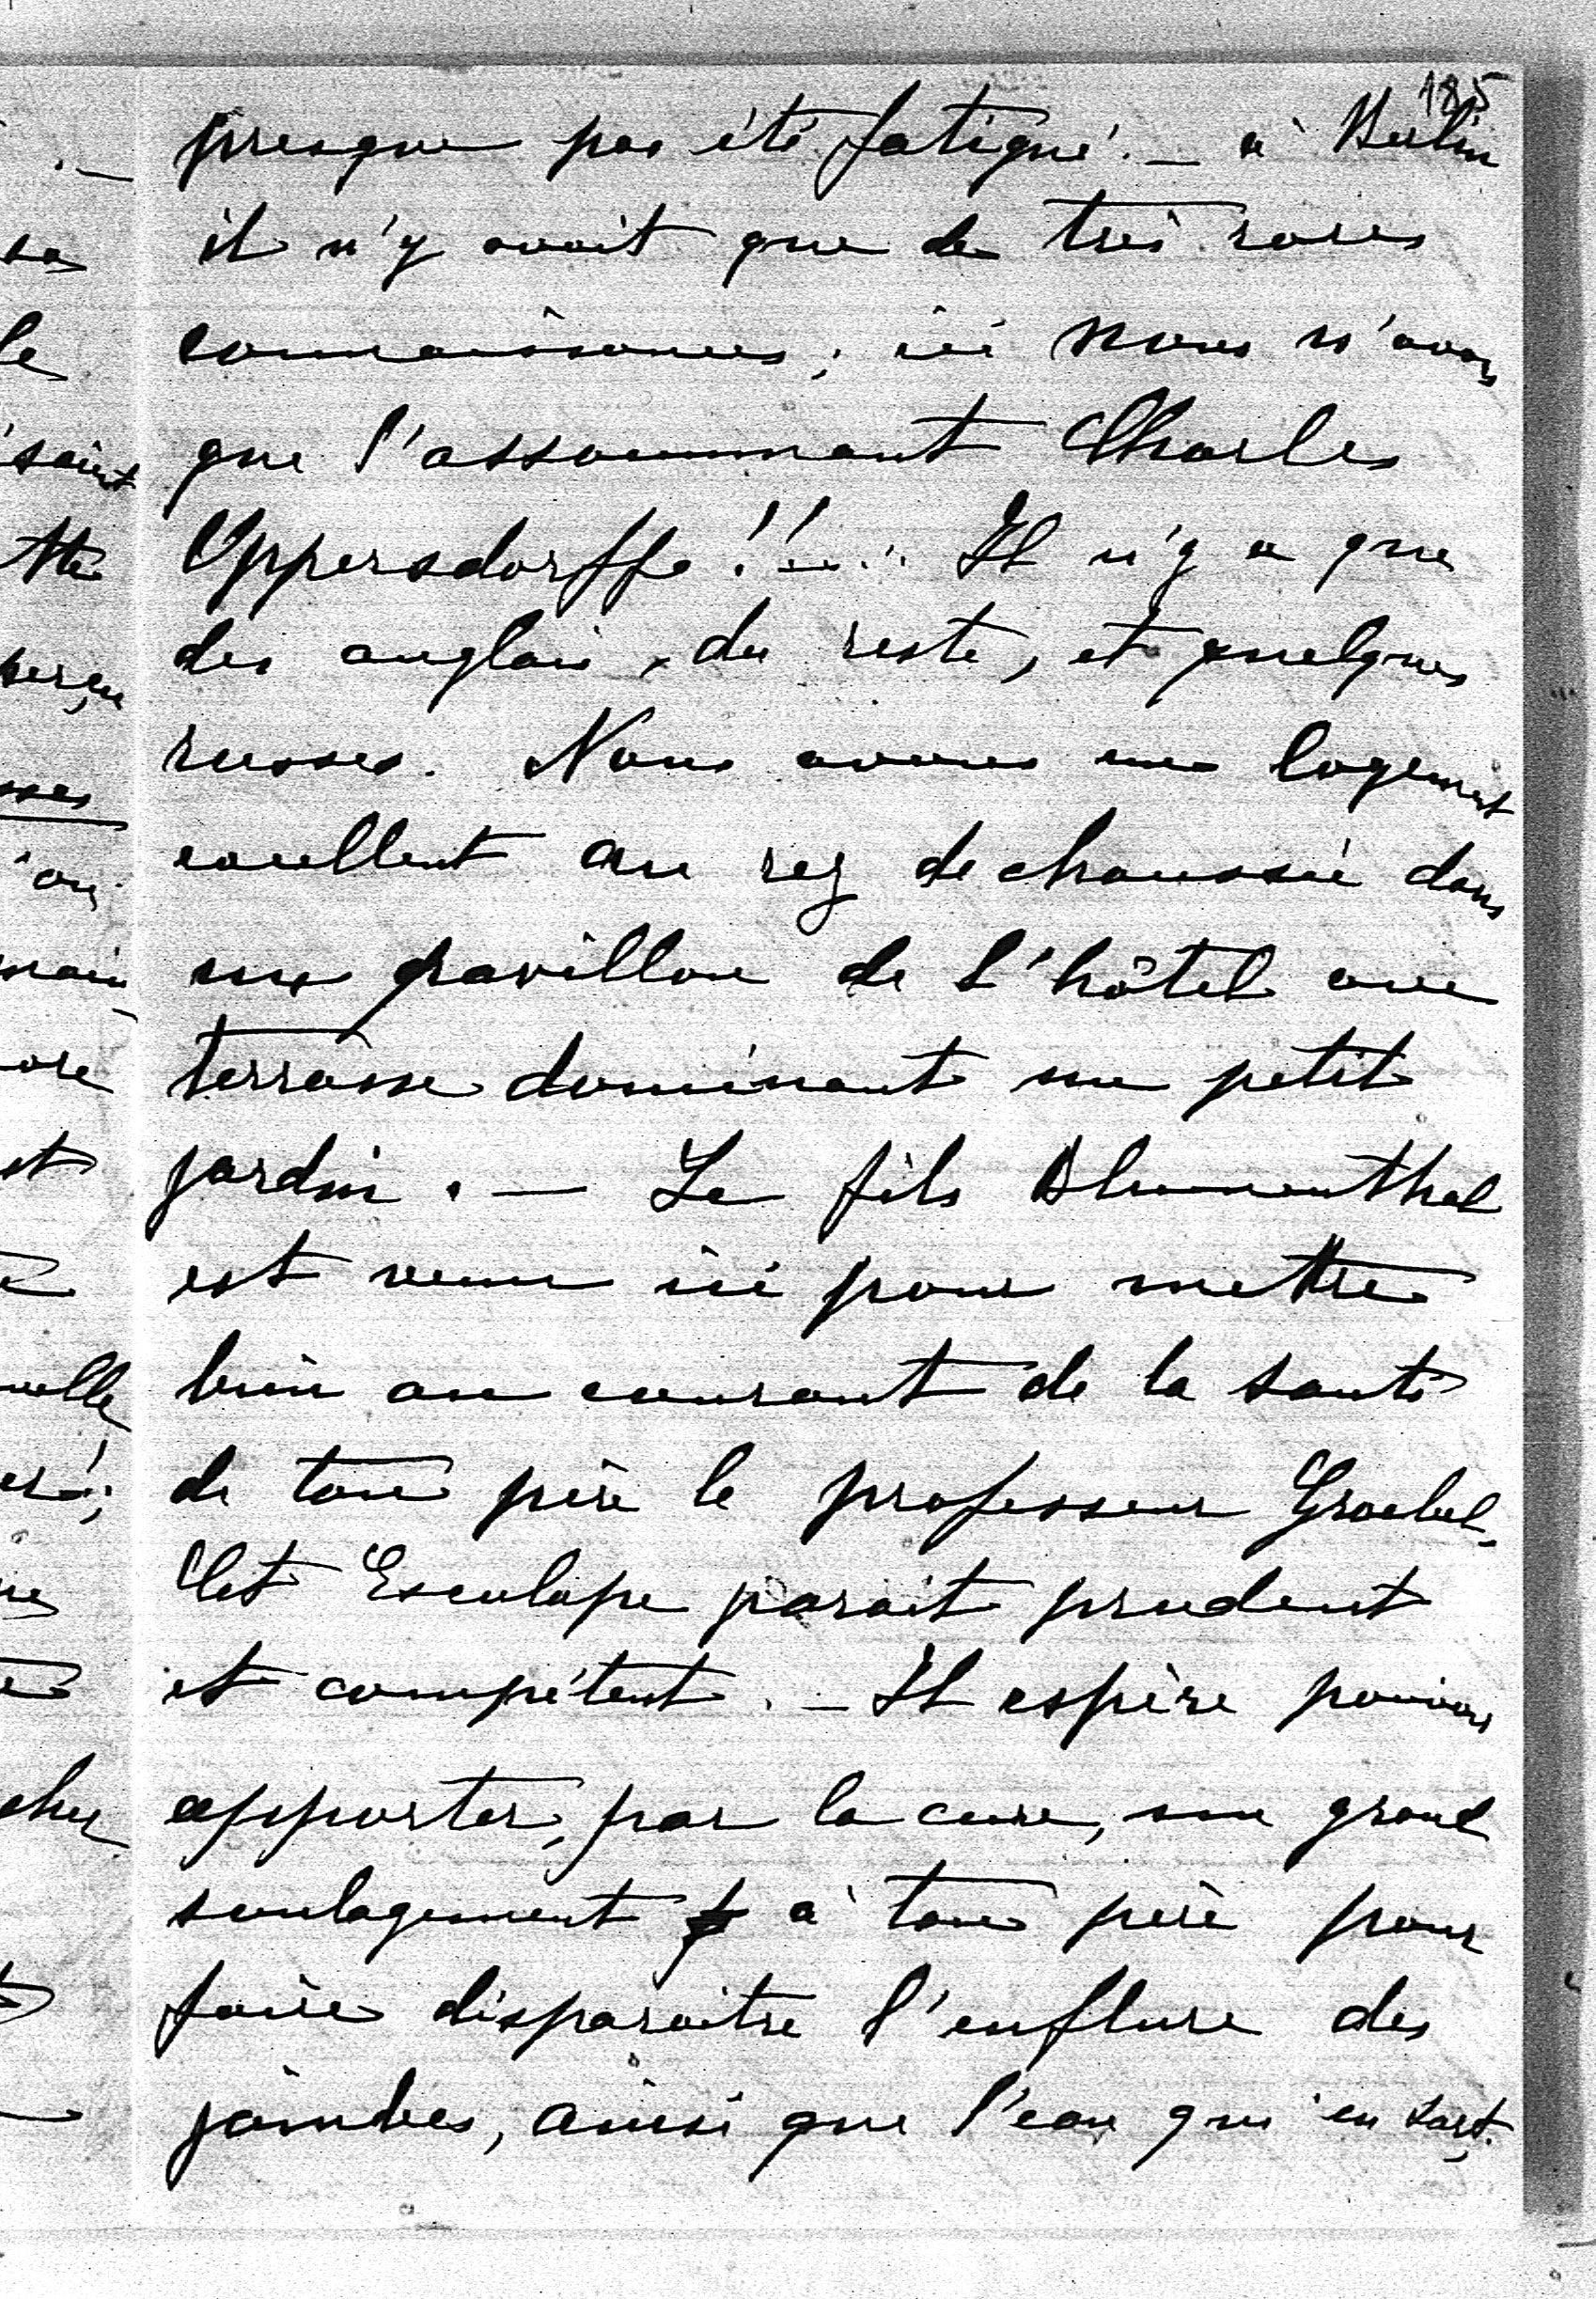 185
presque pas été fatigué. — à Berlin
il n'y avait que de très rares
connaissances; ici nous n'avons
que l'assommant Charles
Oppersdorffe!!... Il n'y a que
des anglais, du reste, et quelques
russes. Nous avons un logement
excellent au rez de chaussée dans
un pavillon de l'hôtel avec
terrasse dominant un petit
jardin. — Le fils Blumenthal
est venu ici pour mettre
bien au courant de la santé
de ton père le professeur Groebel.
Cet Esculape parait prudent
et compétent. — Il espère pouvoir
apporter, par la cure, un grand
soulagement à ton père pour
faire disparaitre l'enflure des
jambes, ainsi que l'eau qui en sort.